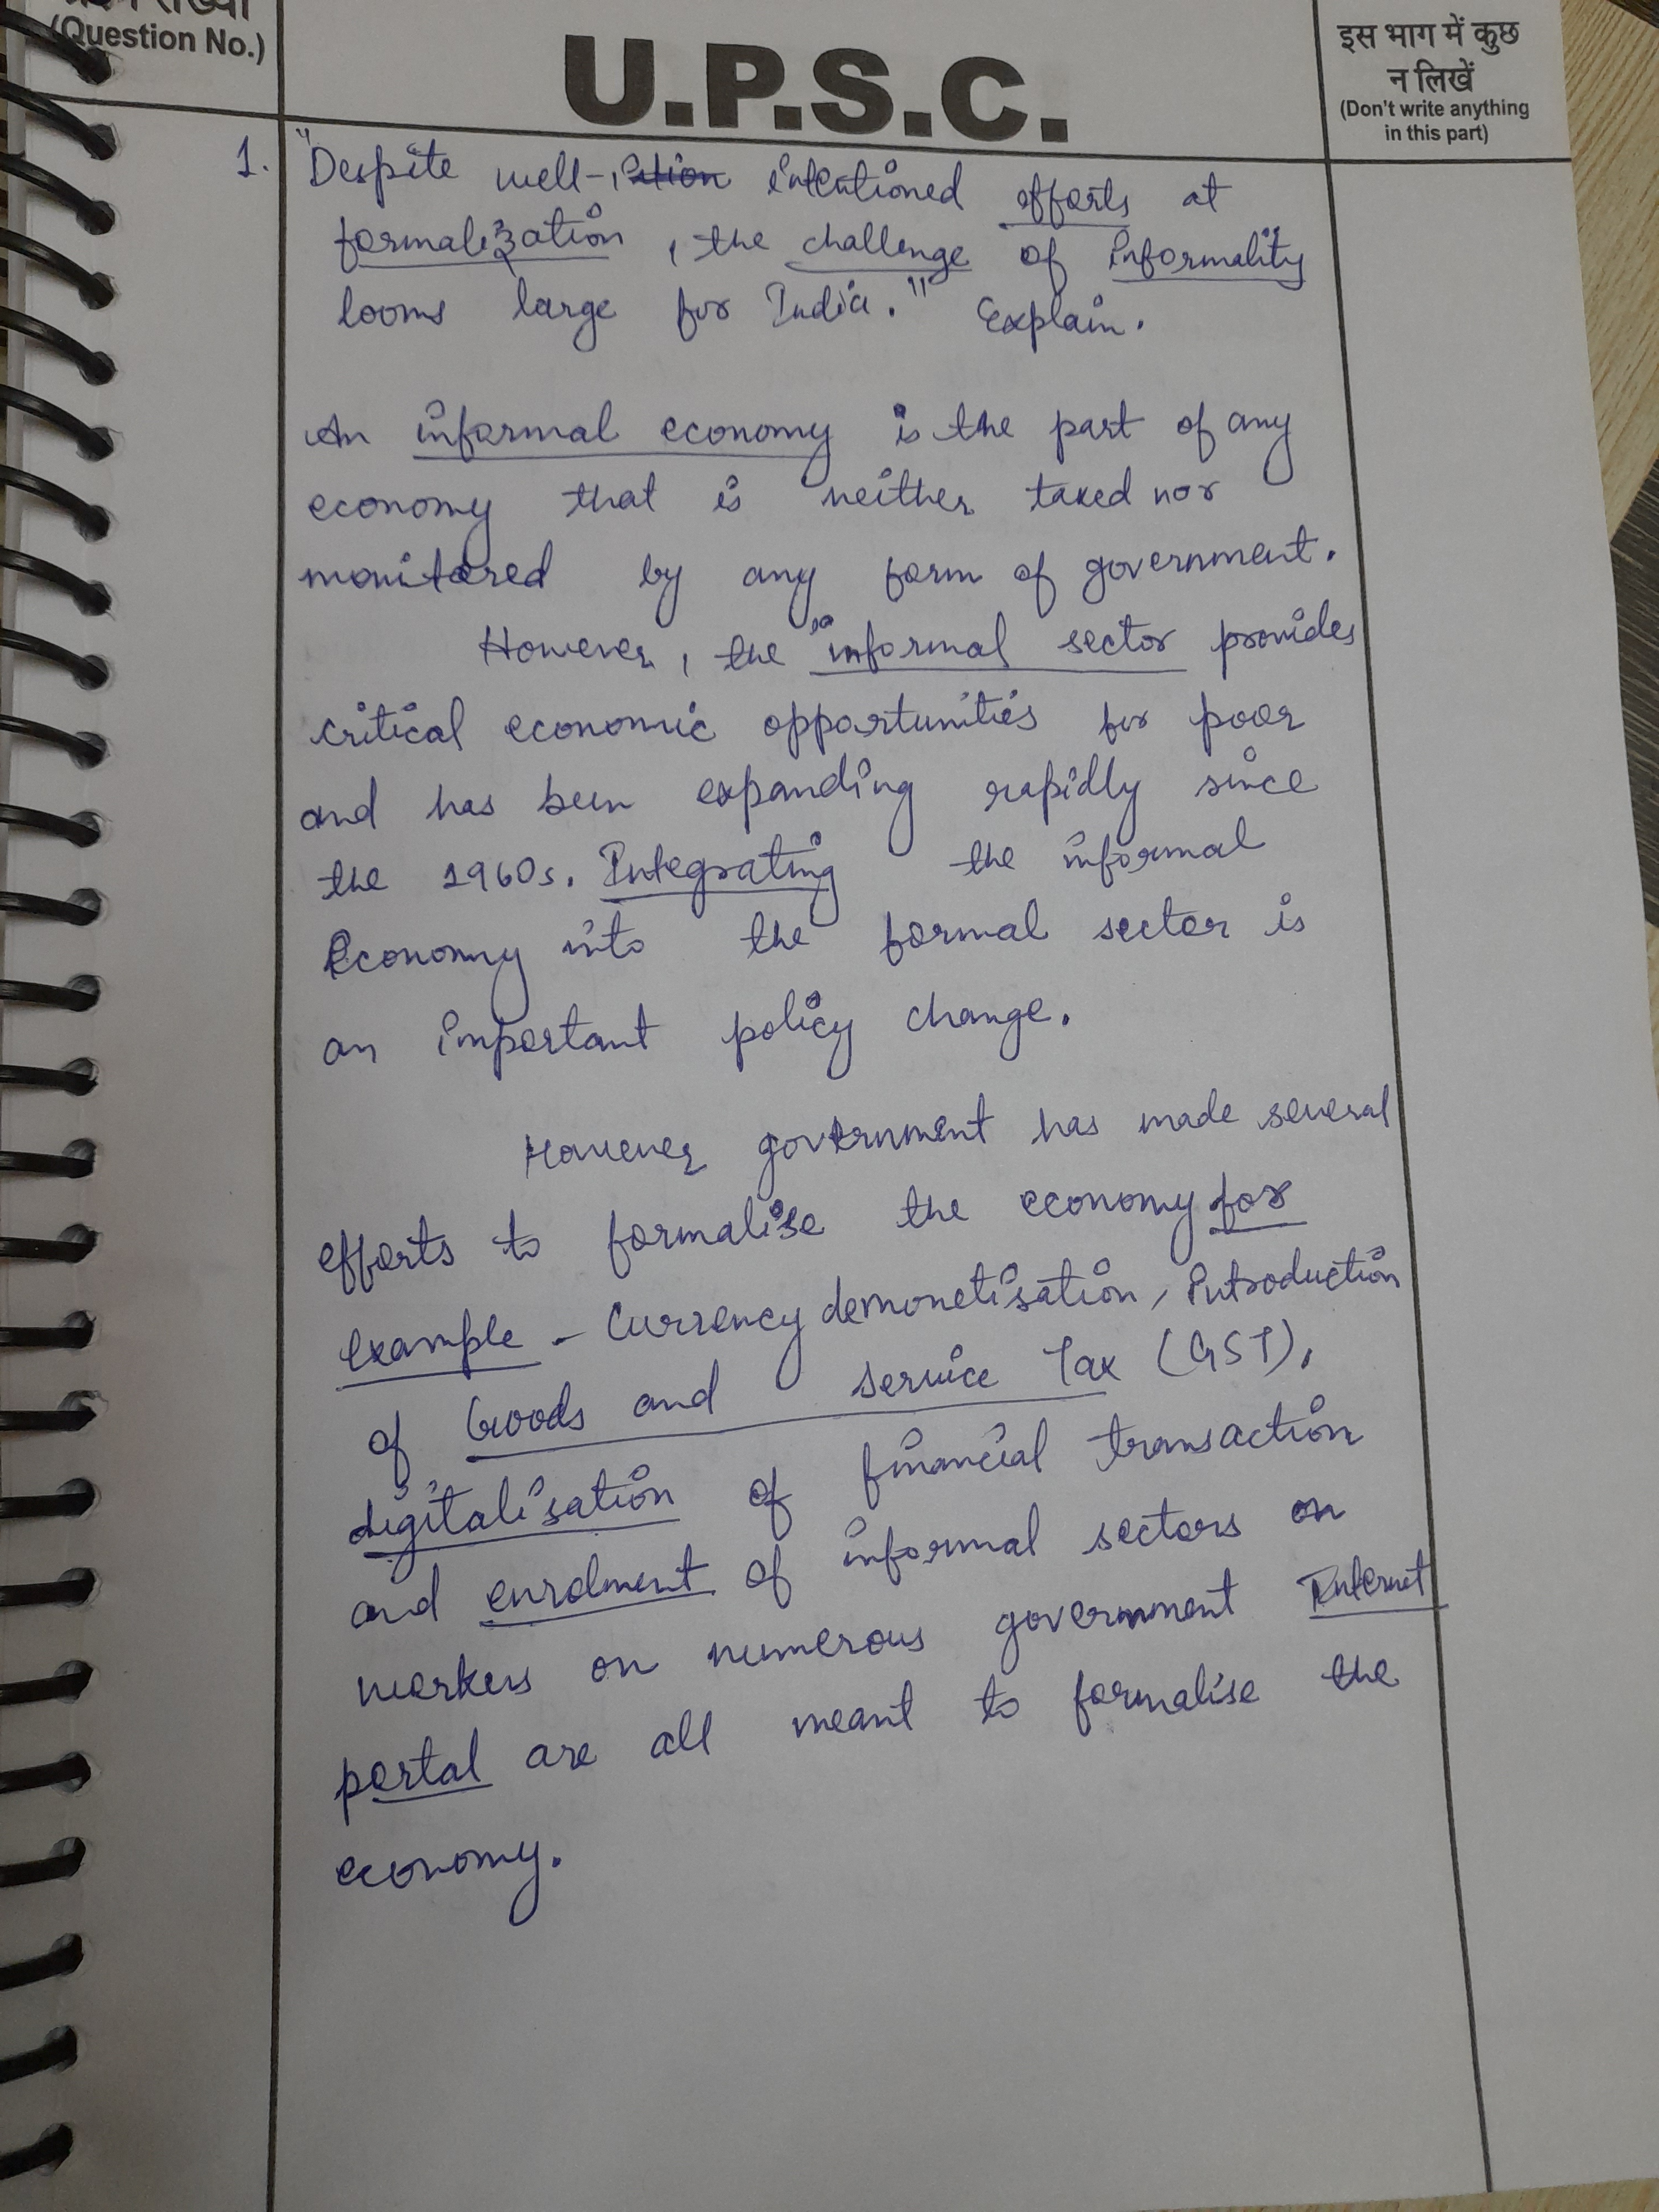 (Question No.)
U.P.S.C.
इस भाग में कुछ
न लिखें
(Don't write anything
in this part)
1. "Despite well- intentioned efforts at
formalization, the challenge of informality
looms large for India." Explain.
An informal economy is the part of any
economy that is neither taxed nor
monitored by any form of government.
However, the informal sector provides
critical economic opportunities for poor
and has been expanding rapidly since
the 1960s. Integrating the informal
Economy into the formal sector is
an important policy change.
However government has made several
efforts to formalise the economy for
example - Currency demonetisation, introduction
of Goods and service Tax (GST),
digitalisation of financial transaction
and enrolment of informal sectors on
workers on numerous government Internet
portal are all meant to formalise the
economy.